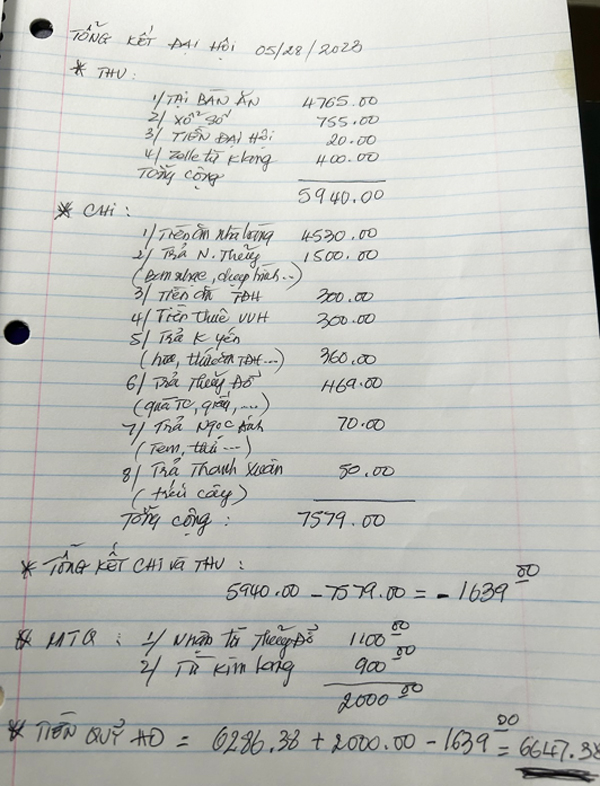 TỔNG KẾT ĐẠI HỘI 05/28/2023
* THU:
1/ TẠI BÀN ĂN 4765.00
2/ XỔ SỐ 755.00
3/ TIỀN ĐẠI HỘI 20.00
4/ Zelle từ K Long 400.00
TỔNG CỘNG
5940.00
* CHI:
1/ Tiền ăn nhà hàng 4530.00
2/ Trả N. Thủy 1500.00
(Ban nhạc, chụp hình...)
3/ Tiền ăn TĐH 300.00
4/ Tiền thuê VVH 300.00
5/ Trả K Yến
(hoa, thức ăn TĐH...) 360.00
6/ Trả Thủy Đỗ 469.00
(quà TC, giấy, ...)
7/ Trả Ngọc Ánh 70.00
(Tem, thư ...)
8/ Trả Thanh Xuân 50.00
(trái cây)
Tổng cộng: 7579.00
* TỔNG KẾT CHI và THU:
5940.00 - 7579.00 = - 1639 00
* MTQ: 1/ Nhận từ Thủy Đỗ 1100 00
2/ Từ Kim Long 900 00
2000 00
* TIỀN QUỸ HĐ = 6286.38 + 2000.00 - 1639 00 = 6647.38